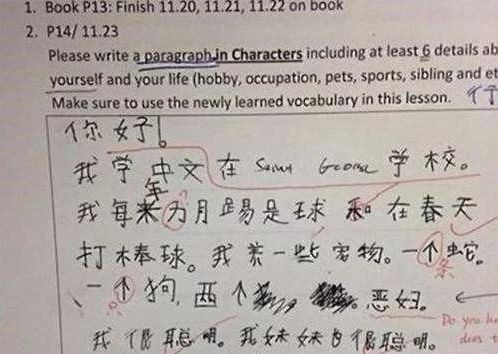 1. Book P13: Finish 11.20, 11.21, 11.22 on book
2. P14/ 11.23
Please write a paragraph in Characters including at least 6 details ab
yourself and your life (hobby, occupation, pets, sports, sibling and et
Make sure to use the newly learned vocabulary in this lesson.
你好!
我学中文在 Saint George 学校。
年
我每米力月踢是球 和 在春天
打棒球。我养一些宠物。一个蛇。
条
一个狗, 西个 恶妞。
Do you ha
does t
我很聪明。我妹妹也很聪明。